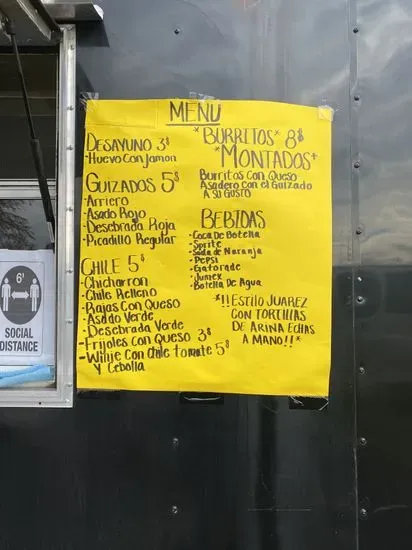 MENU
DESAYUNO 3$
-Huevo Con Jamon
GUIZADOS 5$
-Arriero
-Asado Rojo
-Desebrada Roja
-Picadillo Regular
CHILE 5$
-Chicharron
-Chile Relleno
-Rajas Con Queso
-Asado Verde
-Desebrada Verde
-Frijoles Con Queso 3$
-Winje Con Chile tomate 5$
y Cebolla
*BURRITOS* 8$
*MONTADOS*
Burritos Con Queso
Asadero Con el Guizado
A SU GUSTO
BEBIDAS
-Coca De Botella
-Sprite
-Soda de Naranja
-Pepsi
-Gatorade
-Jumex
-Botella De Agua
*!!ESTILO JUAREZ
CON TORTILLAS
DE ARINA ECHAS
A MANO!!*
6'
SOCIAL
DISTANCE